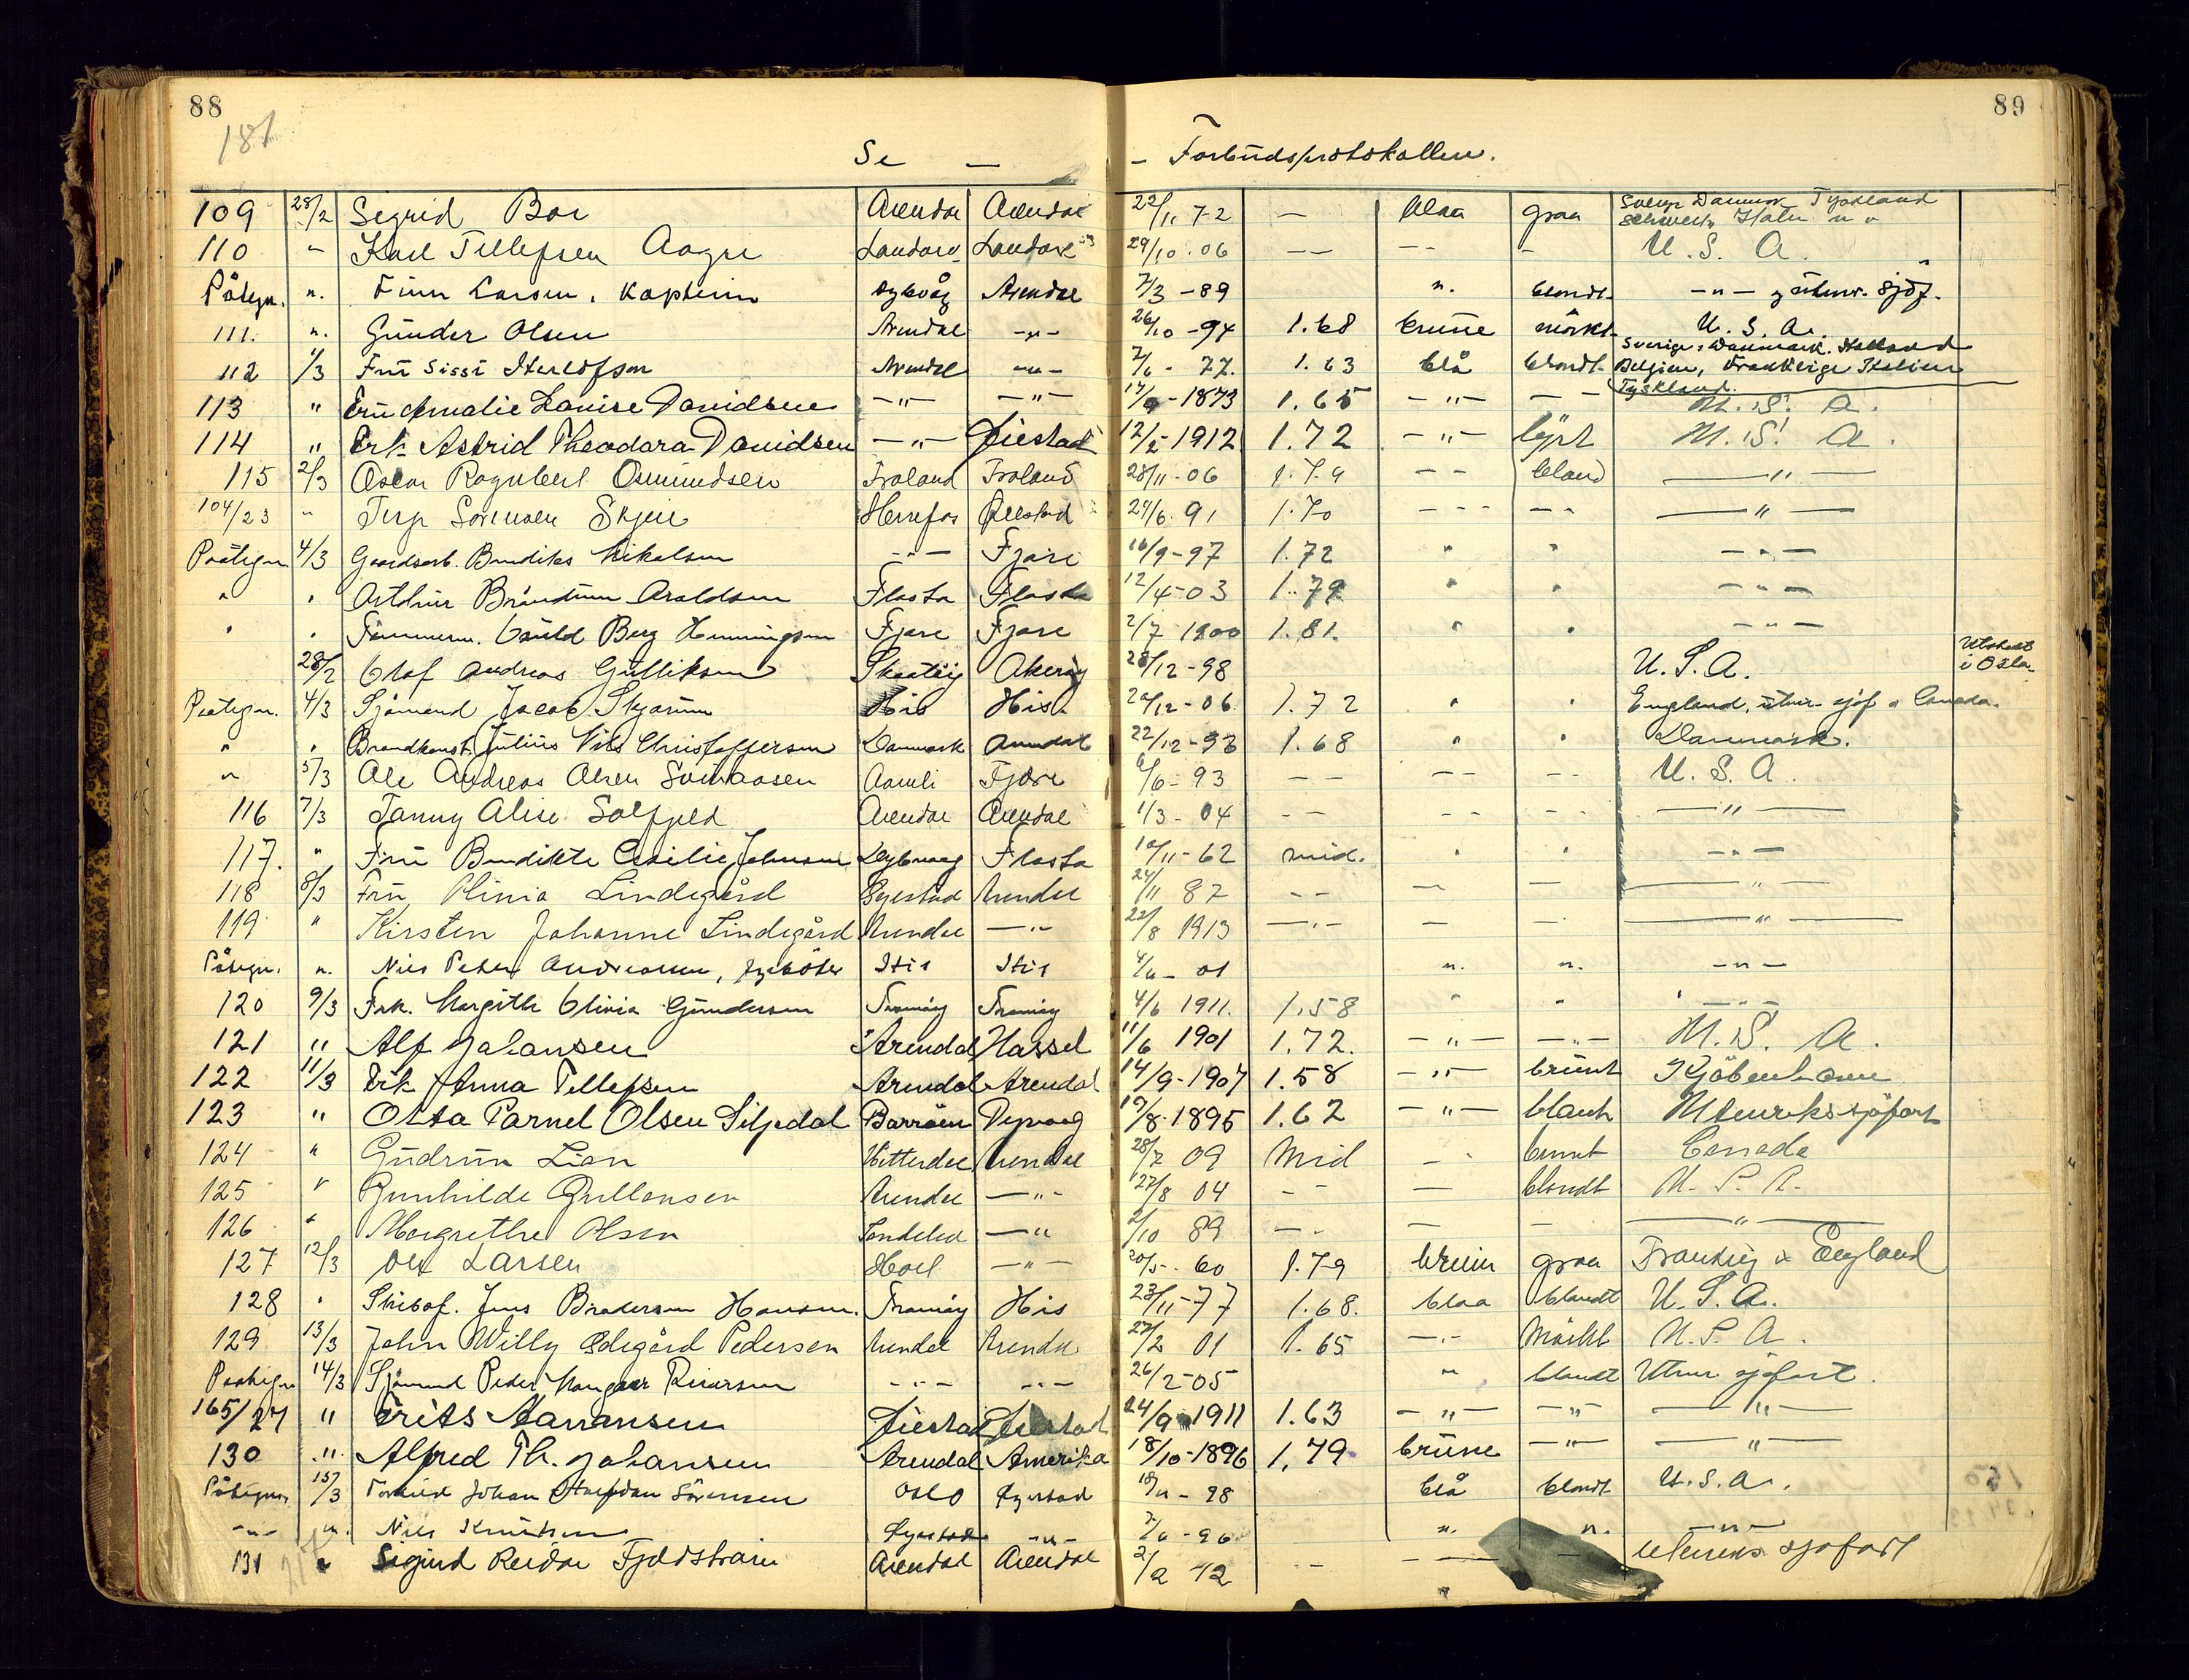 88
89
181
Se — – Forbudsprotokollen.
109 28/2 Sigrid Boe Arendal Arendal 22/11 72 — blaa graa Sverge Danmark Tyskland
110 " Karl Tellefsen Aagre 29/10 06 — — — U. S. A.
Påtegn. ". Finn Larsen, Kaptein Dybvåg Arendal 7/3 -89 ". blondt. -"- utenr. Sjöf.
111. ". Gunder Olsen Arendal -"- 26/10 -94 1.68 brune mörkt U. S. A.
112 1/3 Fru Sissi Arendal -"- 77. 1.63 blå blondt. Sverige, Danmark. Holland Belgien, Frankrige Italien Tyskland.
113 " Fru Amalie Louise Davidsen -"- -"- 1873 1.65 -"- — — U. S. A.
114 " Frk. Astrid Theodora Davidsen -"- Öiestad 1912 1.72 -"- lyst U. S. A.
115 2/3 Oscar Ragnvert Osmundsen Froland Froland 28/11-06 1.79 — — blond —"—
104/23 " Sörensen Skjeie Herefos Öiestad 29/6. 91 1.70 --- -- —"—
Paategn. 4/3 Gaardsarb. Bendiks Mikalsen -"- Fjære 16/9-97 1.72 " " -"-
" " Arthur Aroldsen Flosta Flosta 12/4-03 1.79 " " -"-
" " Tömmerm. Berg Henningsen Fjære Fjære 2/7 1900 1.81. " " -"-
28/2 Olof Andreas Gulliksen Skaatöy Akeröy 28/12-98 U. S. A. Utstedt i Oslo
Paategn. 4/3 Sjömand Jacob His His. 12-06. 1.72 " " England, utenr. sjöf o Canada.
" " Brandkonst. Julius Nils Christoffersen Danmark Arendal 22/12-93 1.68 " " Danmark.
" 5/3 Ole Andreas Olsen Aamli Fjære 6/6-93 — — — — — — U. S. A.
116 7/3 Fanny Alise Solfjeld Arendal Arendal 1/3- 04 — — — — — — —"—
117. " Fru Bendikte Cecilie Johnsen Dybvaag Flosta 11-62 mid. " " -"-
118 8/3 Fru Olivia Lindegård Öyestad Arendal 24/11 87 — — — — —"—
119 " Kirsten Johanne Lindegård Arendal —"- 22/8 1913 —"— — — —"—
Påtegn. ". Nils Peter Andreasen, fyrböter His His 01 ". ". -"-
120 9/3 Frk. Margith Olivia Gundersen Tromöy Tromöy 4/6 1911. 1.58 " " -"-
121 " Alf Johansen Arendal Hassel 11/6 1901 1.72. -"- -"- U. S. A.
122 11/3 Frk Anna Tellefsen Arendal Arendal 14/9-1907 1.58 -"- brunt Kjöbenhavn
123 " Olsen Siljedal Barröen Dypvaag 8-1895 1.62 -"- blont Utenrikssjöfart
124 " Gudrun Lian Hitterdal Arendal 28/7 09 Mid — " brunt Canada
125 " Gunhilde Gullansen Arendal —"- 27/8 04 — — — blondt U. S. A.
126 " Margrethe Olsen Söndeled —"- 2/10 89 — - — — —"—
127 12/3 Larsen -"- 20/5- 60 1.79 brun graa Frankrig & England
128 " Skibsf. Jens Brodersen Hansen. Tromöy His 23/11-77 1.68. blaa blondt U. S. A.
129 13/3 John Willy Ödegård Pedersen Arendal Arendal 27/2 01 1.65 -"- Mörkt U. S. A.
Paategn 14/3 Sjömand Peder -"- -"- 26/2-05 " blondt Utenr. sjöfart.
165/27 " Frits Aanansen Öiestad Öiestad 24/9 1911 1.63 -"- -"- —"—
130 " Alfred Th. Johansen Arendal Amerika 18/10-1896 1,79 brune -"- —"—
Påtegn. 15/3 Johan Sörensen Oslo Öyestad - 98 blå blondt U. S. A.
-"- ". Nils Knutsen Öyestad -"- -96 ". ". -"-
131 " Sigurd Reidar Arendal Arendal 12 — — — — utenriks sjøfart